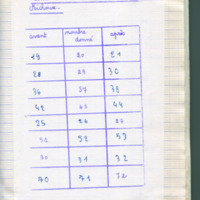 avant nombre donné après
19 20 21
28 29 30
76 77 78
42 43 44
25 26 27
51 52 53
30 31 32
70 71 72